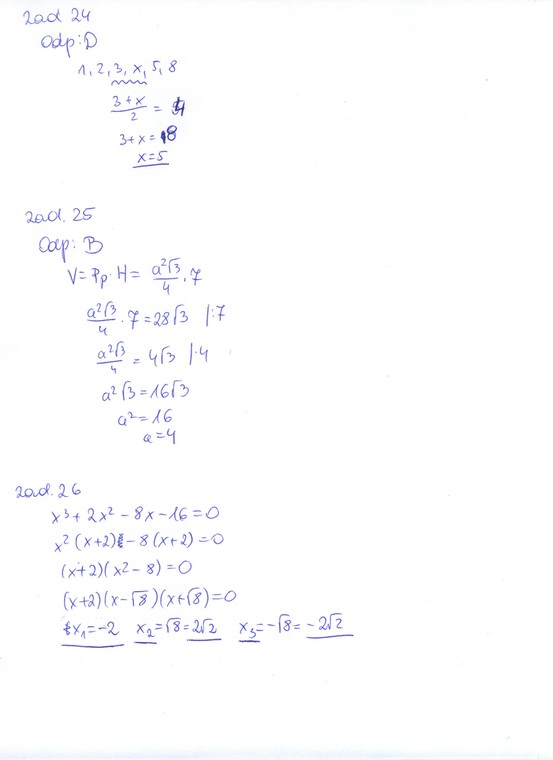 Zad 24
Odp: D
1, 2, 3, x, 5, 8
(3+x)/2 = 4
3+x = 8
x=5
Zad. 25
Odp: B
V = Pp · H = (a²√3)/4 · 7
(a²√3)/4 · 7 = 28√3 |:7
(a²√3)/4 = 4√3 |·4
a²√3 = 16√3
a² = 16
a = 4
Zad. 26
x³ + 2x² - 8x - 16 = 0
x² (x+2) - 8 (x+2) = 0
(x+2)(x² - 8) = 0
(x+2)(x-√8)(x+√8) = 0
x₁ = -2 x₂ = √8 = 2√2 x₃ = -√8 = -2√2